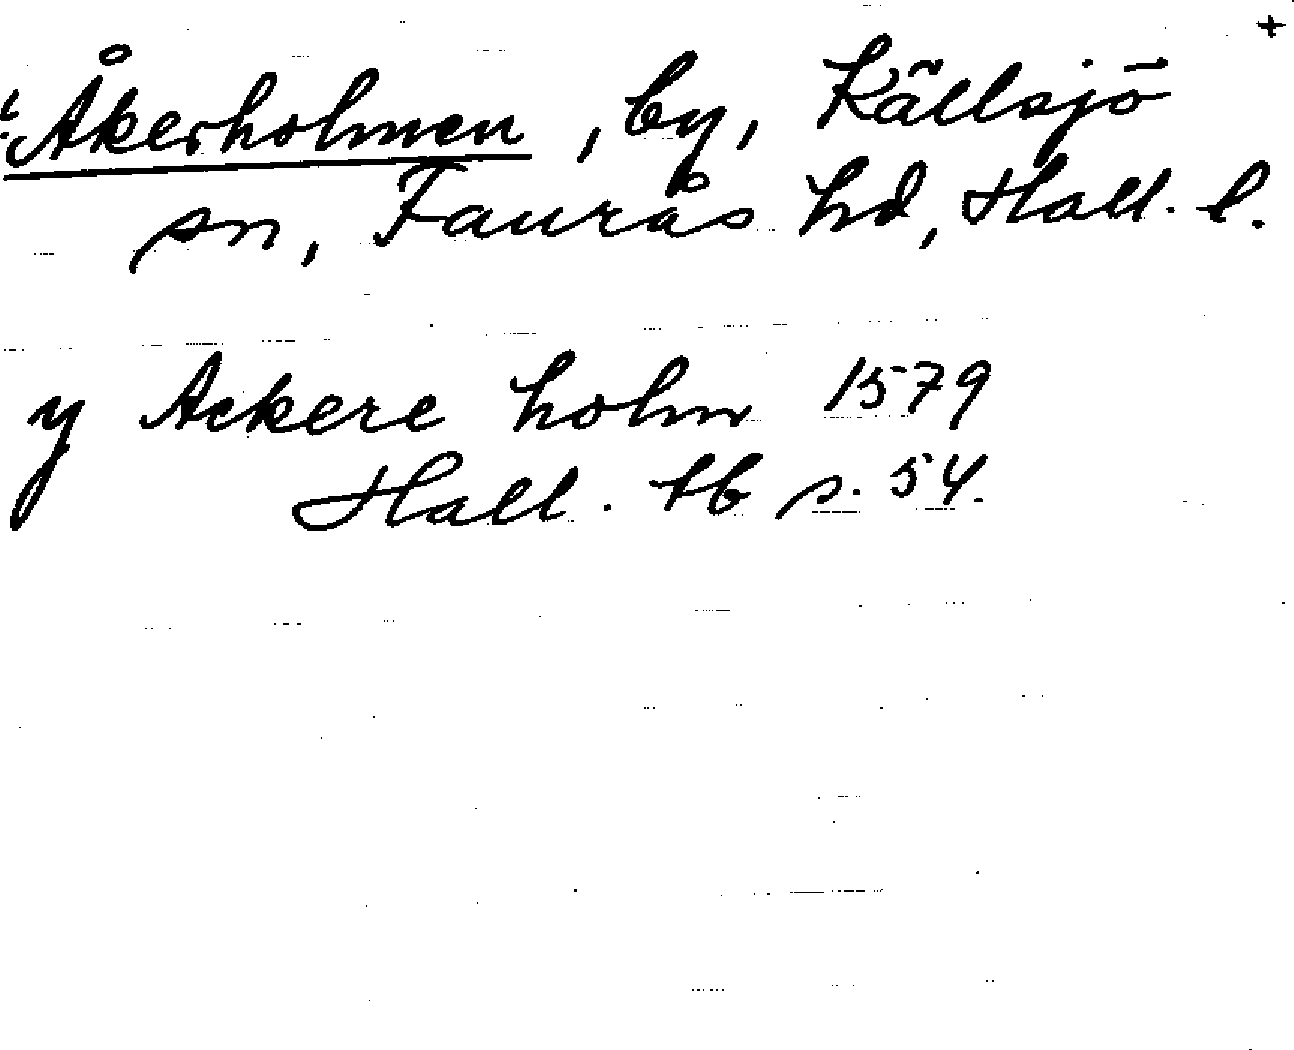 +
Åkerholmen, by, Källsjö
sn, Faurås hd, Hall. l.
y Ackere holm 1579
Hall. tb s. 54.